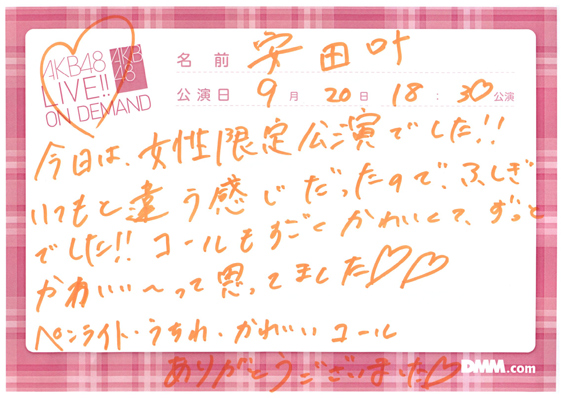 AKB48
LIVE!!
ON DEMAND
AKB
48
名前 安田叶
公演日 9月20日 18:30公演
今日は、女性限定公演でした!!
いつもと違う感じだったので、ふしぎ
でした!!コールもすごくかわいくて、ずっと
かわいい〜って思ってました♡♡
ペンライト・うちわ・かわいいコール
ありがとうございました♡
DMM.com